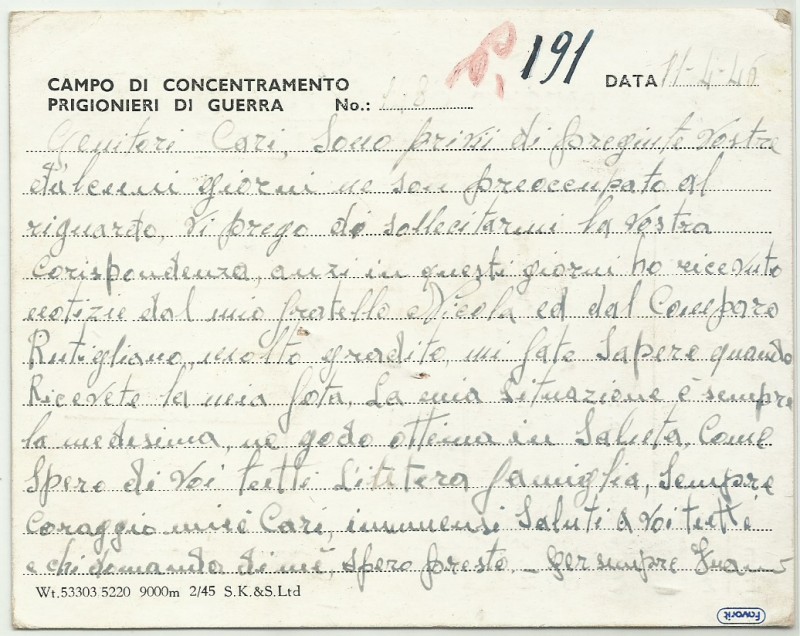 191
CAMPO DI CONCENTRAMENTO
PRIGIONIERI DI GUERRA No.:
DATA 11-4-46
Genitori Cari, Sono privi di pregiate Vostre
d'alcuni giorni ne son preoccupato al
riguardo, Vi prego di sollecitarmi la Vostra
Corispondenza, anzi in questi giorni ho ricevuto
notizie dal mio fratello Nicola ed dal Comparo
Rutigliano, molto gradito, mi fate Sapere quando
Ricevete la mia foto. La mia Situazione è sempre
la medesima, ne godo ottima in Saluta, Come
Spero di Voi tutti L'itera famiglia, Sempre
Coraggio miei Cari, immensi Saluti a Voi tutti
e chi domanda di me, spero presto. - per sempre
Wt.53303.5220 9000m 2/45 S.K.&S.Ltd
Favorit